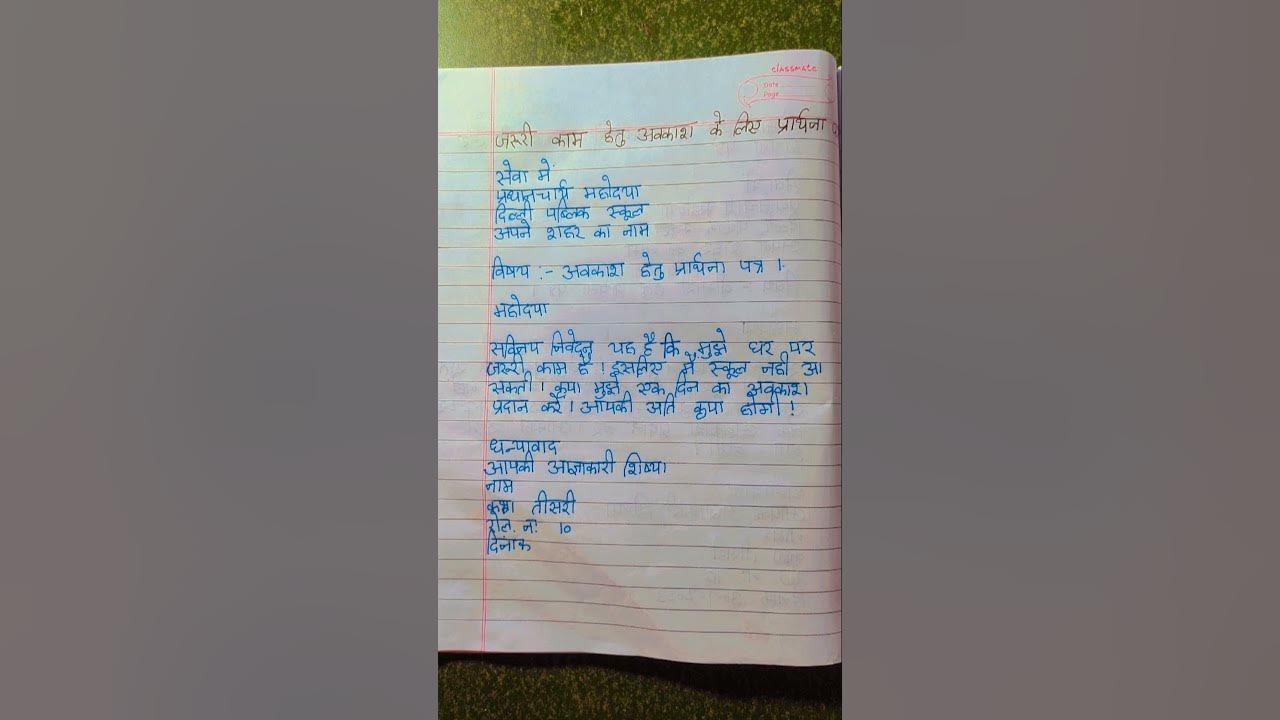 classmate
Date
Page
जरूरी काम हेतु अवकाश के लिए प्रार्थना प
सेवा में
प्रधानचार्य महोदया
दिल्ली पब्लिक स्कूल
अपने शहर का नाम
विषय :- अवकाश हेतु प्रार्थना पत्र ।
महोदया
सविनय निवेदन यह है कि मुझे घर पर
जरूरी काम है । इसलिए मैं स्कूल नहीं आ
सकती । कृपा मुझे एक दिन का अवकाश
प्रदान करें । आपकी अति कृपा होगी !
धन्यावाद
आपकी आज्ञाकारी शिष्या
नाम
कक्षा तीसरी
रोल. नं. 10
दिनांक